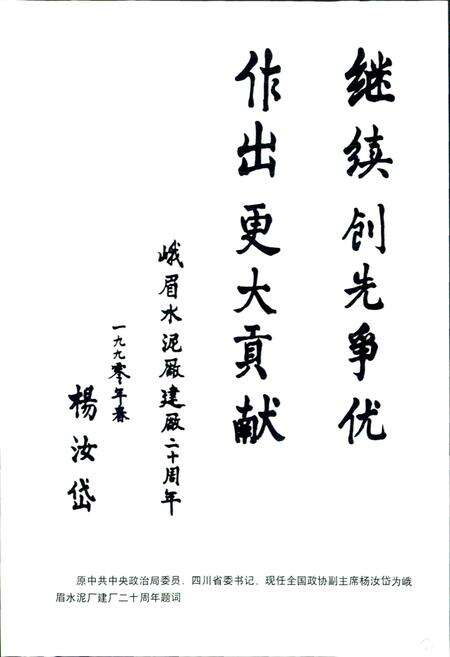 继续创先争优
作出更大贡献
峨眉水泥厰建厰二十周年
一九九零年春
楊汝岱
原中共中央政治局委员、四川省委书记、现任全国政协副主席杨汝岱为峨
眉水泥厂建厂二十周年题词